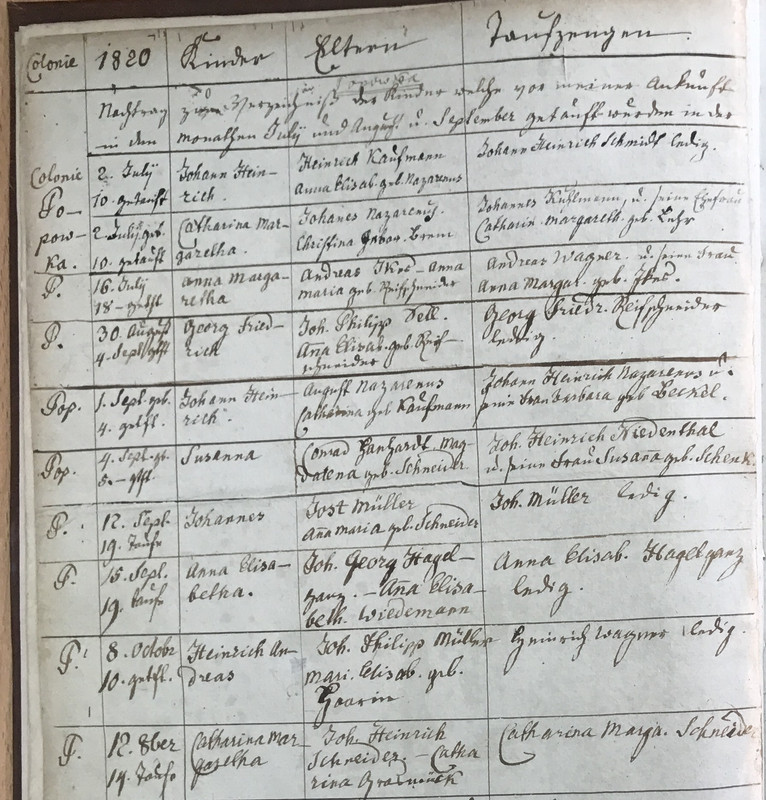 Colonie 1820 Kinder Eltern Taufzeugen
Popowka
Nachtrag zum Verzeichniß der Kinder welche vor meiner Ankunft
in den monathen July und August u. September getauft wurden in der
Colonie
Po-
pow-
ka.
2. July
10. getauft
Johann Hein-
rich.
Heinrich Kaufmann
Anna Elisab. geb. Nazarenus
Johann Heinrich Schmidt ledig.
2 July geb.
10. getauft
Catharina Mar-
garetha.
Johanes Nazarenus.
Christina gebor.
Johannes Kuhlmann, u. seine Ehefrau
Catharin. margareth. geb. Lehr
P.
16. July
18 - getft
anna Marga-
retha
Andreas - Anna
maria geb. Reifschneider
Andreas Wagner. u. seine Frau
Anna Margar. geb.
P.
30. August
4. Sept. getft
Georg Fried-
rich
Joh. Philipp Dell.
Aña Elisab. geb. Reif-
schneider
Georg Friedr. Reifschneider
ledig.
Pop.
1. Sept. geb.
4. getft.
Johann Hein-
rich.
August Nazarenus
Catharina geb Kaufmann
Johann Heinrich Nazarenus u.
seine Frau Barbara geb Beckel.
Pop.
4. Sept. gb.
5. - gtft.
Susanna
Conrad Mag-
dalena geb. Schneider
Joh. Heinrich Niedenthal
u. seine Frau Susana geb. Schenk.
P.
12. Sept.
19. Taufe
Johannes
Jost Müller
Aña maria geb. Schneider
Joh. Müller ledig.
P.
15. Sept.
19. taufe
Anna Elisa-
betha.
Joh. Georg Hagel-
ganz. - Aña Elisa-
beth. Wiedemann
Anna Elisab. Hagelganz
ledig.
P.
8. Octobr
10. getft.
Heinrich An-
dreas
Joh. Philipp Müller
Mari. Elisab. geb.
Haarin
Heinrich Wagner ledig.
P.
12. 8ber
14. Taufe
Catharina Mar-
garetha
Joh. Heinrich
Schneider. - Catha
rina Grasmück
Catharina Marga. Schneider